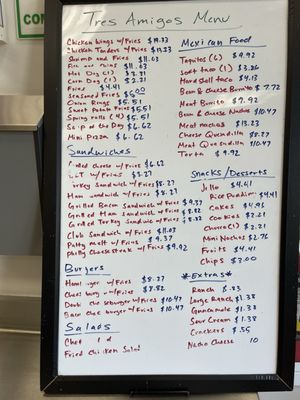 CON
Tres Amigos Menu
Chicken wings w/Fries $11.33
Chicken Tenders w/Fries $13.23
Shrimp and Fries $11.03
$11.03
Hot Dog (1) $2.21
Corn Dog (1) $2.21
Fries $4.41
Seasoned Fries $5.00
Onion Rings $5.51
Sweet Potato Fries $5.51
Spring rolls (4) $5.51
Soup of the Day $6.62
Mini Pizza $6.62
Sandwiches
cheese w/Fries $6.62
BLT w/Fries $7.27
Turkey Sandwich w/Fries $8.27
Ham Sandwich w/Fries $8.27
Grilled Bacon Sandwich w/Fries $9.37
Grilled Ham Sandwich w/Fries $8.82
Grilled Turkey Sandwich w/Fries $8.82
Club Sandwich w/Fries $11.03
Patty melt w/Fries $9.37
Philly Cheese steak w/Fries $9.92
Burgers
w/Fries $8.27
w/Fries $8.82
w/Fries $10.47
cheeseburger w/Fries $10.47
Salads
Chef
Fried chicken Salad
Mexican Food
Taquitos (6) $9.92
Soft taco (1) $3.86
Hard Shell taco $4.13
Bean & cheese Burrito $7.72
Meat Burrito $7.92
Bean & cheese Nachos $10.47
Meat nachos $13.23
Cheese Quesadilla $8.27
Meat Quesadilla $10.47
Torta $9.92
Snacks/Desserts
Jello $4.41
Rice Pudding $4.41
Cakes $4.96
Cookies $2.21
Churro (1) $2.21
Mini Nachos $2.76
Fruits $4.41
Chips $2.00
*Extras*
Ranch $.83
Large Ranch $1.38
Guacamole $1.38
Sour Cream $1.38
Crackers $.55
Nacho Cheese 10